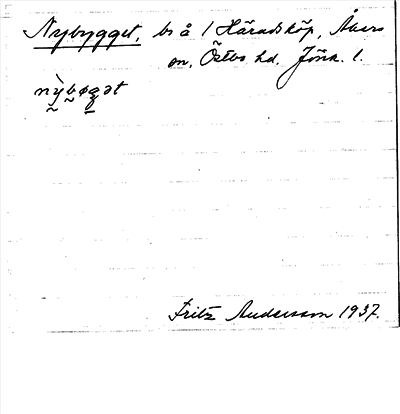 Nybygget, bs å 1 Häradsköp, Åkers
sn, Östbo hd. Jönk. l.
nỳbøgət
Fritz Andersson 1937.